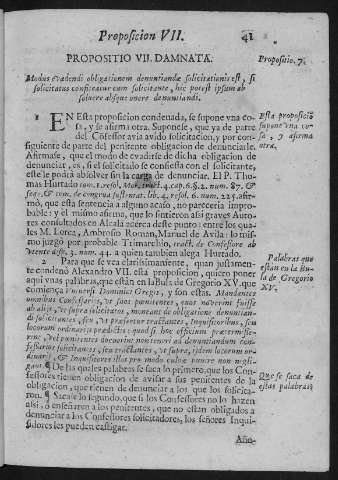 Proposicion VII. 41
PROPOSITIO VII. DAMNATA.
Propositio. 7.
Modus evadendi obligationem denuntiandæ solicitationis est, si
solicitatus confiteatur cum solicitante, hic potest ipsum ab
solvere absque onere denuntiandi.
1 EN Esta proposicion condenada, se supone vna co-
sa, y se afirma otra. Suponese, que ya de parte
del Cõfessor avia avido solicitacion, y por con-
siguiente de parte del penitente obligacion de denunciarle.
Esta proposiciõ
supone vna co-
sa, y afirma
otra.
Afirmase, que el modo de evadirse de dicha obligacion de
denunciar, es, si el solicitado se confiessa con el solicitante,
este le podrá absolver sin la carga de denunciar. El P. Thomas
Hurtado tom. 1. resol. Mor. tract. 4. cap. 6. §. 2. num. 87. &
seq. & tom. de congrua sustentat. lib. 4. resol. 6. num. 225. afir-
mó, que esta sentencia à alguno acaso, no pareceria impro-
bable: y el mismo afirma, que lo sintieron assi graves Auto-
res consultados en Alcalà acerca deste punto: entre los qua-
les M. Lorca, Ambrosio Roman, Manuel de Avila: lo mis-
mo juzgò por probable Trimarchio, tract. de Confessore ab
utente diss. 3. num. 44. à quien tambien alega Hurtado.
2 Para que se vea clarissimamente, quan justamen-
te condenò Alexandro VII. esta proposicion, quiero poner
aqui vnas palabras, que estàn en la Bula de Gregorio XV. que
comiença Vniversi Dominici Gregis, y son estas. Mandantes
Palabras que
estan en la Bu-
la de Gregorio
XV.
omnibus Confessarijs, vt suos pœnitentes, quos noverint fuisse
ab alijs, vt supra solicitatos, moneant de obligatione denuntiandi
solicitantes, seu, vt præfertur tractantes, Inquisitoribus, seu
locorum ordinarijs prædictis; quod si hoc officium prætermise-
rint, vel pœnitentes docuerint non teneri ad denuntiandum con-
fessarios solicitantes, seu tractantes, vt supra, ijdem locorum or-
dinarij, & Inquisitores illos pro modo culpæ punire non negli-
gant. ¶ De las quales palabras se saca lo primero, que los Con-
fessores tienen obligacion de avisar à sus penitentes de la
obligacion, que tienen de denunciar à los que los solicita-
ron. ¶ Sacase lo segundo, que si los Confessores no lo hazen
Que se saca de
estas palabras.
assi, ò enseñaren à los penitentes, que no estàn obligados à
denunciar à los Confessores solicitadores, los señores Inqui-
sidores les pueden castigar.
Aña-